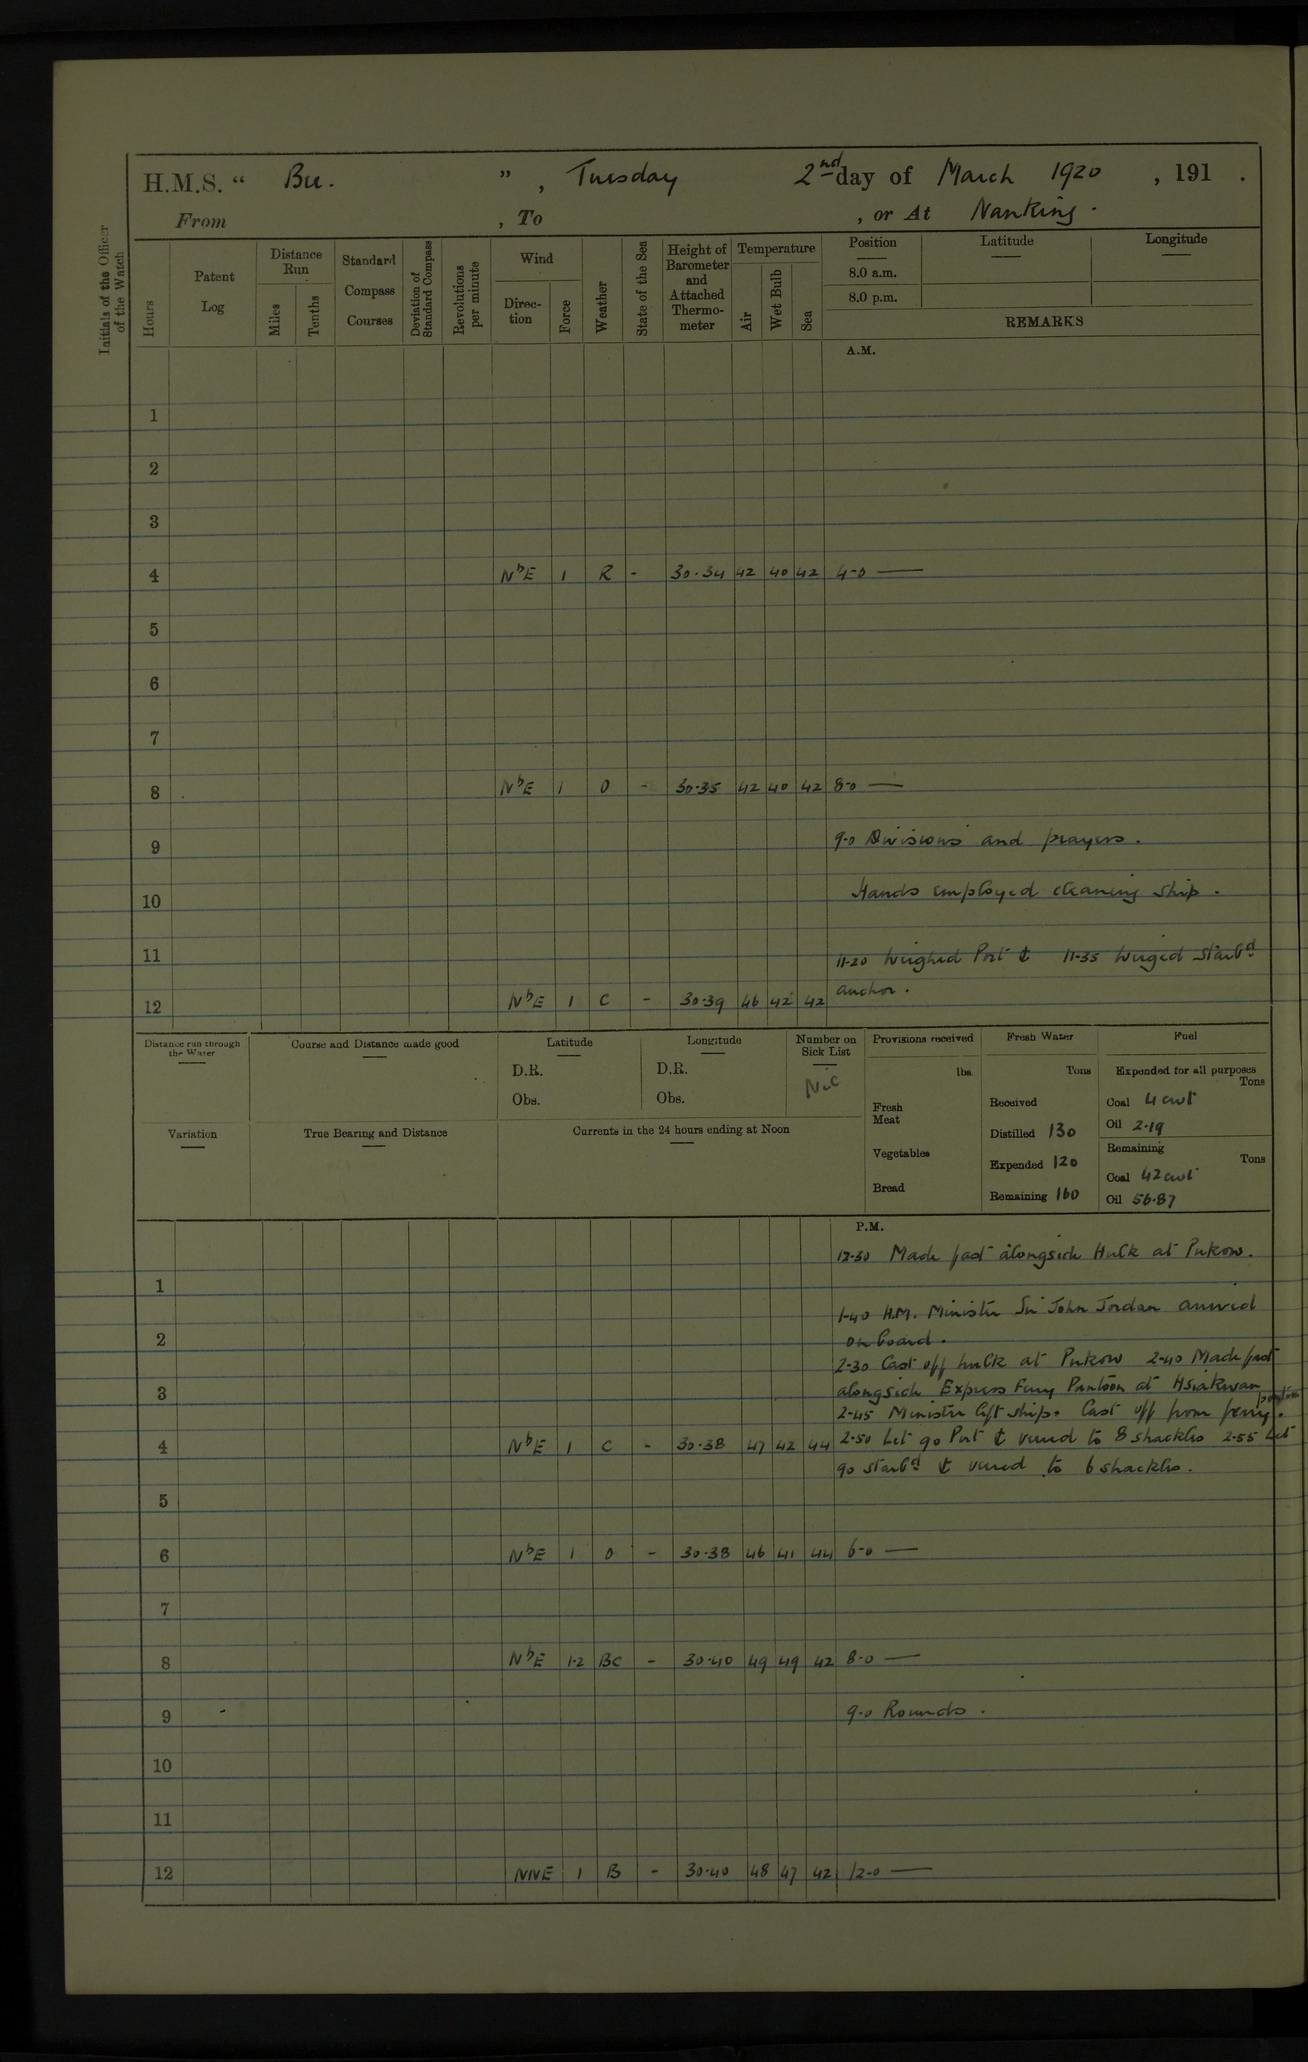 H.M.S. " Bee. ", Tuesday 2nd day of March 1920 , 191 .
From , To , or At Nanking.
Initials of the Officer of the Watch
Hours
Patent Log
Distance Run
Miles
Tenths
Standard Compass Courses
Deviation of Standard Compass
Revolutions per minute
Wind
Direction
Force
Weather
State of the Sea
Height of Barometer and Attached Thermometer
Temperature
Air
Wet Bulb
Sea
Position
8.0 a.m.
8.0 p.m.
Latitude
Longitude
REMARKS
A.M.
1
2
3
4 NbE 1 R - 30.34 42 40 42 4-0 —
5
6
7
8 NbE 1 O - 30.35 42 40 42 8-0 —
9 9-0 Divisions and prayers.
10 Hands employed cleaning ship.
11 11-20 Weighed Port & 11-35 Weiged Starbd
anchor.
12 NbE 1 C - 30.39 46 42 42
Distance run through the Water
Course and Distance made good
Latitude
D.R.
Obs.
Longitude
D.R.
Obs.
Number on Sick List
Nil
Provisions received
lbs.
Fresh Meat
Vegetables
Bread
Fresh Water
Tons
Received
Distilled 130
Expended 120
Remaining 160
Fuel
Expended for all purposes
Tons
Coal 4 cwt
Oil 2.19
Remaining
Tons
Coal 42 cwt
Oil 56.87
Variation
True Bearing and Distance
Currents in the 24 hours ending at Noon
P.M.
12-30 Made fast alongside Hulk at Pukow.
1
1-40 H.M. Minister Sir John Jordan arrived
2 on board.
2-30 Cast off hulk at Pukow 2-40 Made fast
3 alongside Express Ferry Pontoon at Hsiakwan
2-45 Minister left ship. Cast off from ferry pontoon.
4 NbE 1 C - 30.38 47 42 44 2-50 Let go Port & veered to 8 shackles 2-55 Let
go starbd & veered to 6 shackles.
5
6 NbE 1 O - 30.38 46 41 44 6-0 —
7
8 NbE 1.2 BC - 30.40 49 49 42 8-0 —
9 9-0 Rounds.
10
11
12 NNE 1 B - 30.40 48 47 42 12-0 —